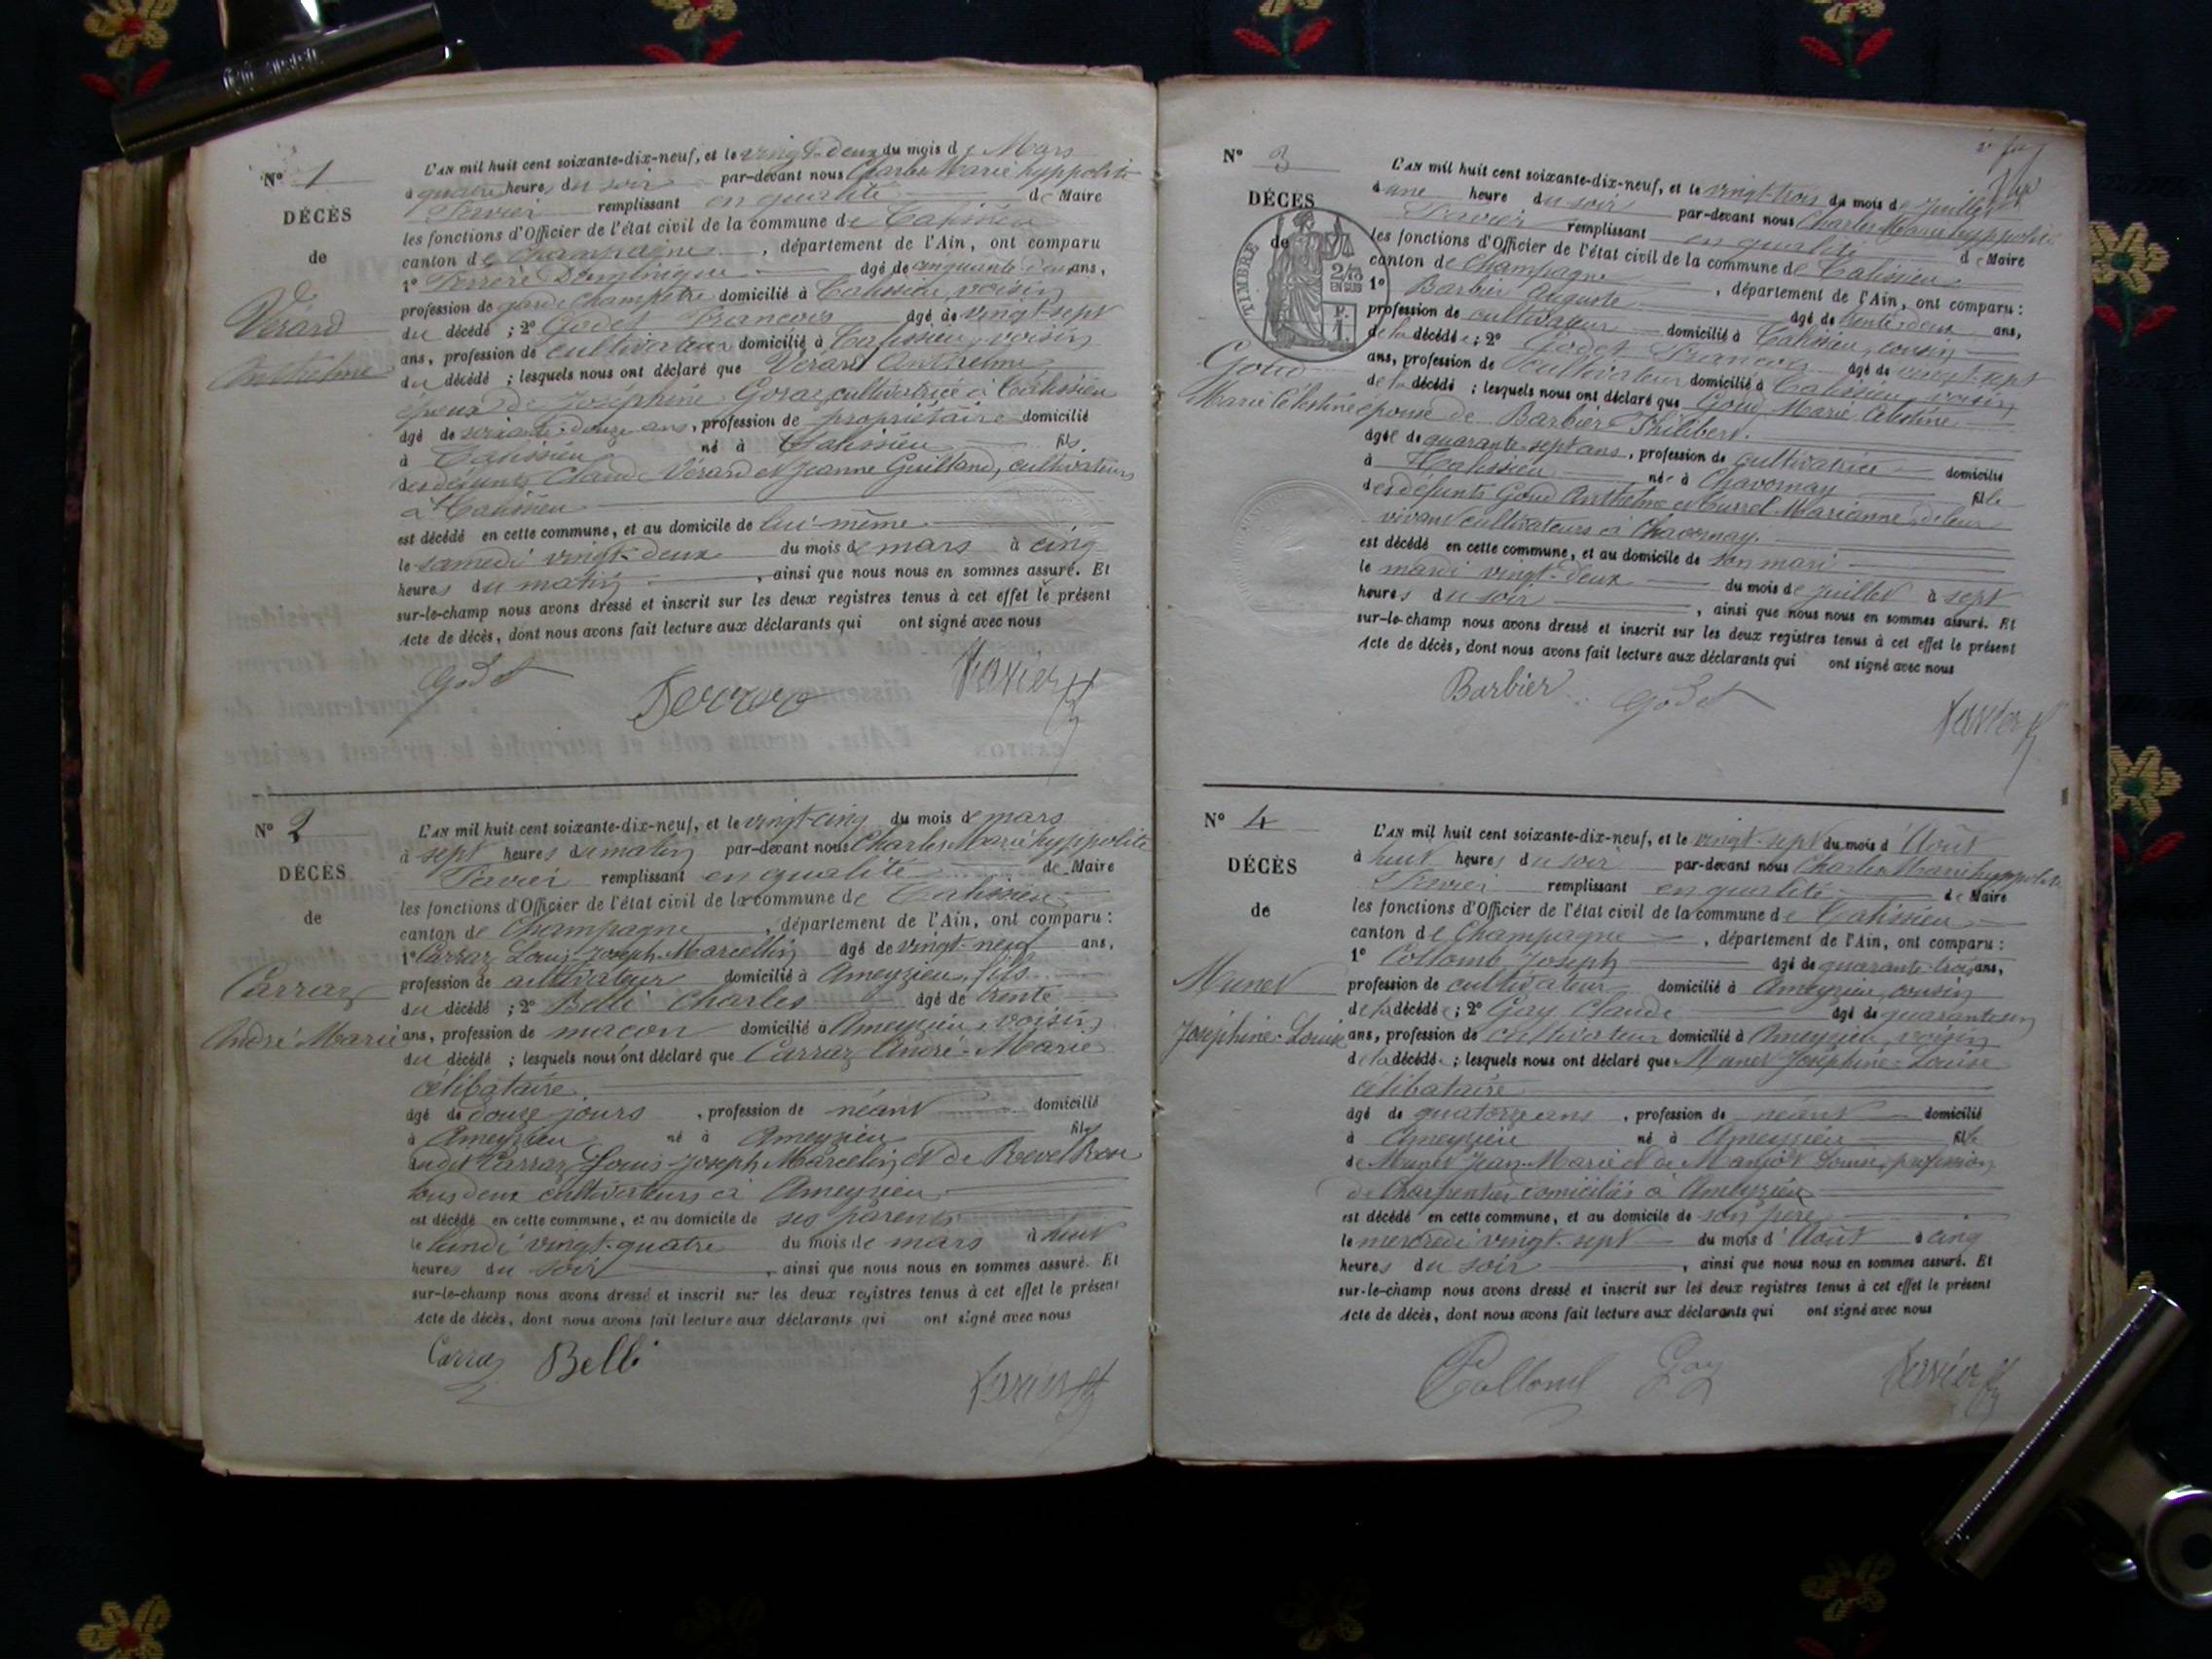 N° 1
DÉCÈS
de
Vérard
Anthelme
L'AN mil huit cent soixante-dix-neuf, et le vingt-deux du mois de Mars
à quatre heures du soir par-devant nous Charles Marie hyppolite
remplissant en qualité de Maire
les fonctions d'Officier de l'état civil de la commune de Talissieu
canton de Champagne, département de l'Ain, ont comparu
1° Dominique âgé de cinquante deux ans,
profession de garde Champêtre domicilié à Talissieu, voisin
du décédé ; 2° Godet François âgé de vingt-sept
ans, profession de cultivateur domicilié à Talissieu, voisin
du décédé ; lesquels nous ont déclaré que Vérard Anthelme
époux de Joséphine cultivatrice à Talissieu
âgé de ans, profession de propriétaire domicilié
à Talissieu né à Talissieu fils
des défunts Claude Vérard et Jeanne Guilland, cultivateurs
à Talissieu
est décédé en cette commune, et au domicile de lui-même
le samedi vingt-deux du mois de mars à cinq
heures du matin, ainsi que nous nous en sommes assuré. Et
sur-le-champ nous avons dressé et inscrit sur les deux registres tenus à cet effet le présent
Acte de décès, dont nous avons fait lecture aux déclarants qui ont signé avec nous
Godet
N° 2
DÉCÈS
de
Carraz
André Marie
L'AN mil huit cent soixante-dix-neuf, et le vingt-cinq du mois de mars
à sept heures du matin par-devant nous Charles Marie hyppolite
remplissant en qualité de Maire
les fonctions d'Officier de l'état civil de la commune de Talissieu
canton de Champagne, département de l'Ain, ont comparu :
1° Carraz Louis Joseph Marcellin âgé de vingt-neuf ans,
profession de cultivateur domicilié à Ameyzieu, fils
du décédé ; 2° Belli Charles âgé de trente
ans, profession de macon domicilié à Ameyzieu, voisin
du décédé ; lesquels nous ont déclaré que Carraz André-Marie
célibataire
âgé de douze jours, profession de néant domicilié
à Ameyzieu né à Ameyzieu fils
dudit Carraz Louis-Joseph Marcelin et de Revel Rose
tous deux cultivateurs à Ameyzieu
est décédé en cette commune, et au domicile de ses parents
le lundi vingt-quatre du mois de mars à huit
heures du soir, ainsi que nous nous en sommes assuré. Et
sur-le-champ nous avons dressé et inscrit sur les deux registres tenus à cet effet le présent
Acte de décès, dont nous avons fait lecture aux déclarants qui ont signé avec nous
Carraz Belli
N° 3
DÉCÈS
de
TIMBRE
Goud
Marie Célestine
L'AN mil huit cent soixante-dix-neuf, et le vingt-trois du mois de juillet
à une heure du soir par-devant nous Charles Marie hyppolite
remplissant en qualité de Maire
les fonctions d'Officier de l'état civil de la commune de Talissieu
canton de Champagne, département de l'Ain, ont comparu :
1° Barbier Auguste âgé de trente-deux ans,
profession de cultivateur domicilié à Talissieu, cousin
de la décédée ; 2° Godet François âgé de vingt-sept
ans, profession de cultivateur domicilié à Talissieu, voisin
de la décédé ; lesquels nous ont déclaré que Goud Marie Célestine
épouse de Barbier Philibert.
âgée de quarante-sept ans, profession de cultivatrice domicilié
à Talissieu née à Chavornay fille
des défunts Goud Anthelme et Marianne, de leur
vivant cultivateurs à Chavornay.
est décédé en cette commune, et au domicile de son mari
le mardi vingt-deux du mois de juillet à sept
heures du soir, ainsi que nous nous en sommes assuré. Et
sur-le-champ nous avons dressé et inscrit sur les deux registres tenus à cet effet le présent
Acte de décès, dont nous avons fait lecture aux déclarants qui ont signé avec nous
Barbier Godet
N° 4
DÉCÈS
de
Munet
Joséphine-Louise
L'AN mil huit cent soixante-dix-neuf, et le vingt-sept du mois d'Août
à huit heures du soir par-devant nous Charles Marie hyppolite
remplissant en qualité de Maire
les fonctions d'Officier de l'état civil de la commune de Talissieu
canton de Champagne, département de l'Ain, ont comparu :
1° Collomb Joseph âgé de quarante-trois ans,
profession de cultivateur domicilié à Ameyzieu, cousin
de la décédée ; 2° Gay Claude âgé de quarante un
ans, profession de cultivateur domicilié à Ameyzieu, voisin
de la décédée ; lesquels nous ont déclaré que Munet Joséphine-Louise
célibataire
âgé de quatorze ans, profession de néant domicilié
à Ameyzieu né à Ameyzieu fille
de Munet Jean-Marie et de Louise, profession
de Charpentier domiciliés à Ameyzieu
est décédé en cette commune, et au domicile de son père
le mercredi vingt-sept du mois d'Août à cinq
heures du soir, ainsi que nous nous en sommes assuré. Et
sur-le-champ nous avons dressé et inscrit sur les deux registres tenus à cet effet le présent
Acte de décès, dont nous avons fait lecture aux déclarants qui ont signé avec nous
Collomb Gay